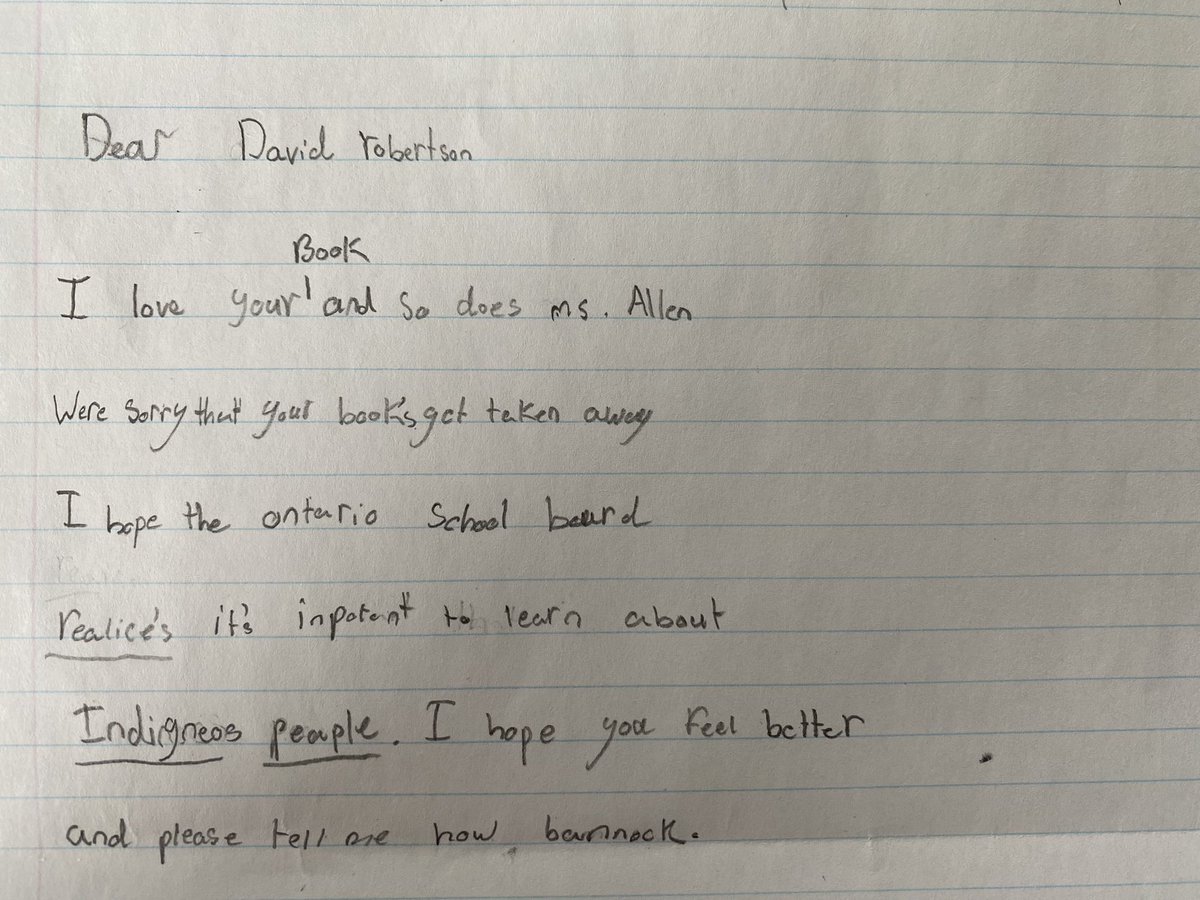 Dear David robertson
Book
I love your and so does ms. Allen
Were sorry that your book's get taken away
I hope the ontario School beard
realice's it's inpotent to learn about
Indigneos peaple. I hope you feel better
and please tell me how bannock.